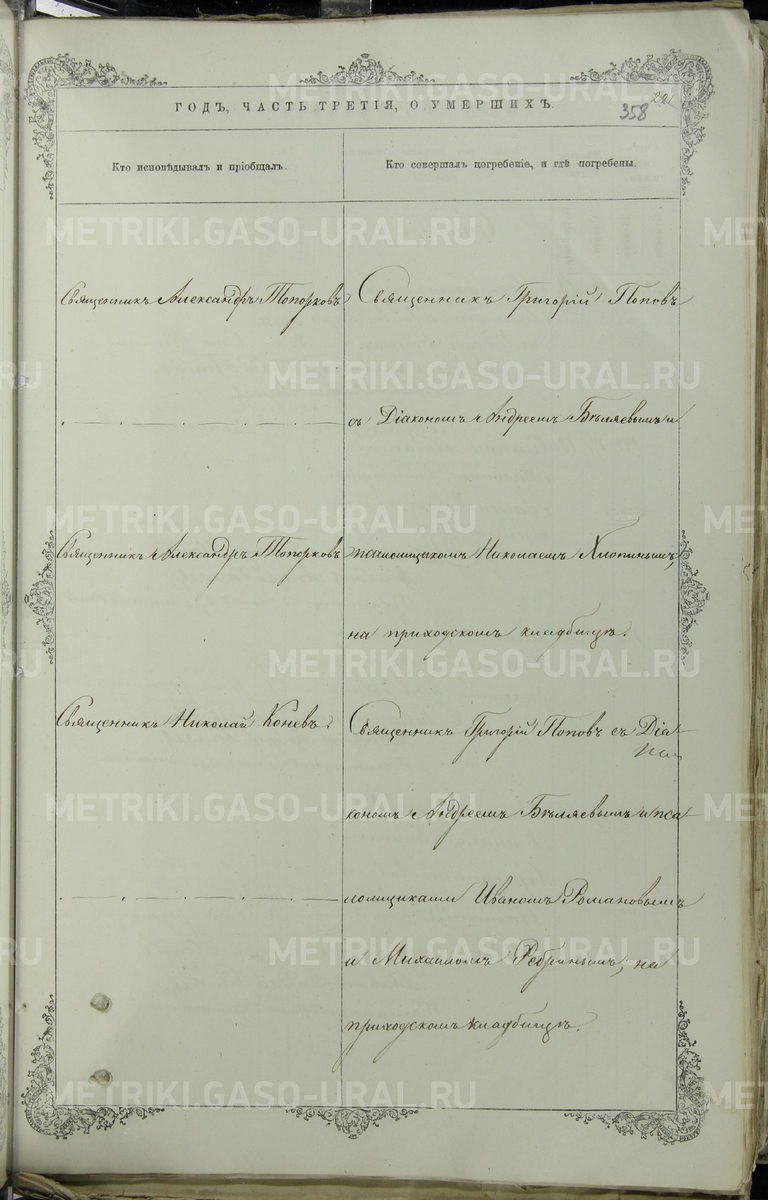 ГОДЪ, ЧАСТЬ ТРЕТІЯ, О УМЕРШИХЪ.
358
Кто исповѣдывалъ и пріобщалъ.
Кто совершалъ погребеніе, и гдѣ погребены.
Священникъ Александръ Топорковъ
Священникъ Григорій Поповъ
съ Діакономъ Андреемъ Бѣляевымъ и
Священникъ Александръ Топорковъ
псаломщикомъ Николаемъ Хлопинымъ,
на приходскомъ кладбищѣ.
Священникъ Николай Коневъ.
Священникъ Григорій Поповъ съ Діа-
кономъ Андреемъ Бѣляевымъ и пса-
ломщиками Иваномъ Романовымъ
и Михаиломъ Ребринымъ, на
приходскомъ кладбищѣ.
METRIKI.GASO-URAL.RU